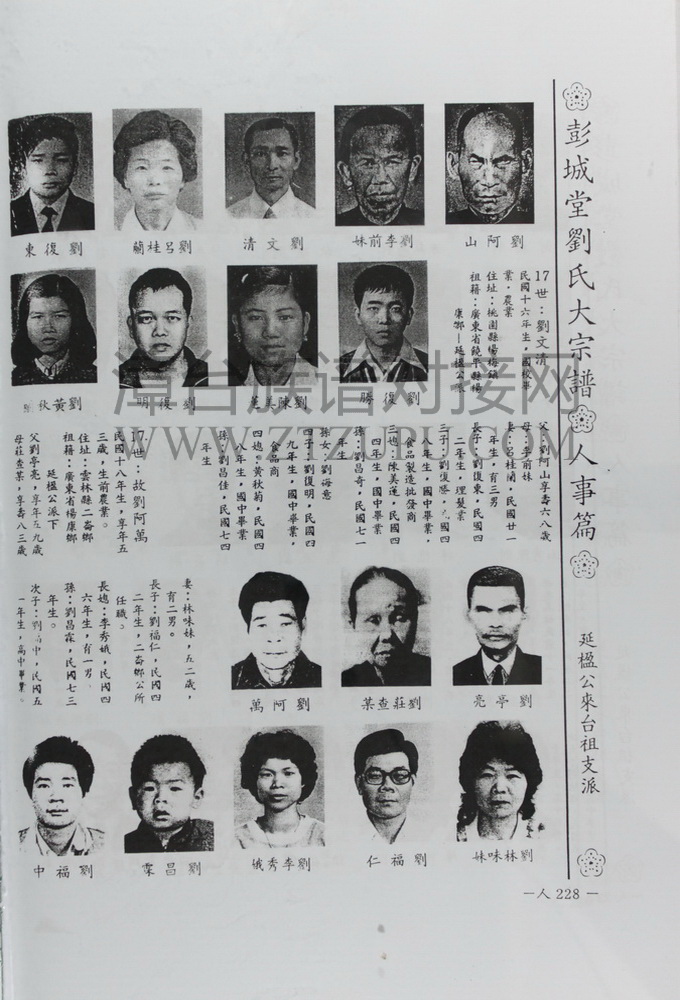 彭城堂劉氏大宗譜 人事篇
延楹公來台祖支派
—人 228—
劉阿山
劉李前妹
劉文清
劉呂桂蘭
劉復東
17世：劉文清
民國十六年生，國校畢
業。農業
住址：桃園縣楊梅鎮
祖籍：廣東省饒平縣楊
康鄉—延楹公派
劉復勝
劉陳美蓮
劉復明
劉黃秋菊
父：劉阿山享壽六八歲
母：李前妹
妻：呂桂蘭，民國廿一
年生，有三男
長子：劉復東，民國四
二年生，理髮業
三子：劉復勝，民國四
八年生，國中畢業，
食品製造批發商
三媳：陳美蓮，民國四
四年生，國中畢業
孫：劉昌奇，民國七一
年生
孫女：劉海意
四子：劉復明，民國四
九年生，國中畢業，
食品商
四媳：黃秋菊，民國四
八年生，國中畢業
孫：劉昌佳，民國七四
年生
17世：故劉阿萬
民國十八年生，享年五
三歲，生前農業。
住址：雲林縣二崙鄉
祖籍：廣東省楊康鄉
延楹公派下
父劉亭亮，享年五九歲
母莊查某，享壽八三歲
劉亭亮
劉莊查某
劉阿萬
妻：林味妹，五二歲，
有二男。
長子：劉福仁，民國四
二年生，二崙鄉公所
任職。
長媳：李秀娥，民國四
六年生，有一男。
孫：劉昌霖，民國七三
年生。
次子：劉福中，民國五
一年生，高中畢業。
劉林味妹
劉福仁
劉李秀娥
劉昌霖
劉福中
滬台族谱对接网
WWW.ZTZUPU.COM